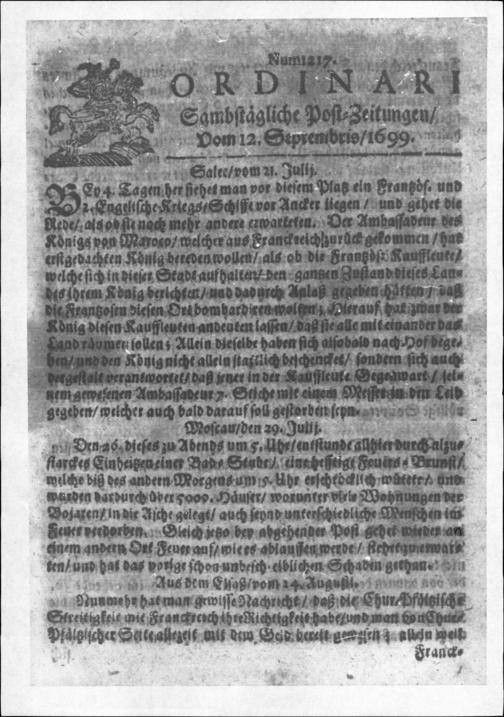 Num1217.
ORDINARI
Sambstägliche Post-Zeitungen/
Vom 12. Septembris/1699.
Salee/vom 21. Julij.
BEy 4. Tagen her siehet man vor diesem Platz ein Französ. und
2. Engelische Kriegs-Schiffe vor Ancker liegen/ und gehet die
Rede/ als ob sie noch mehr andere erwarteten. Der Ambassadeur des
Königs von Maroco/ welcher aus Franckreich zurück gekommen/ hat
erstgedachten König bereden wollen/ als ob die Französ. Kauffleute/
welche sich in dieser Stadt aufhalten/ den ganzen Zustand dieses Lan-
des ihrem König berichten/ und dadurch Anlaß gegeben hätten/ daß
die Franzosen diesen Ort bombardiren wolten; Hierauf hat zwar der
König diesen Kauffleuten andeuten lassen/ daß sie alle mit einander das
Land räumen sollen; Allein dieselbe haben sich alsobald nach Hof bege-
ben/ und den König nicht allein stattlich beschencket/ sondern sich auch
dergestalt verantwortet/ daß jener in der Kauffleute Gegenwart/ sei-
nem gewesenen Ambassadeur 7. Stiche mit einem Messer in den Leib
gegeben/ welcher auch bald darauf soll gestorben seyn.
Moscau/den 29. Julij.
Den 26. dieses zu Abends um 5. Uhr/ entstunde allhier durch alzu-
starckes Einheitzen einer Bad-Stube/ eine hefftige Feuers-Brunst/
welche biß des andern Morgens um 9. Uhr erschröcklich wütete/ und
wurden dardurch über 5000. Häuser/ worunter viele Wohnungen der
Bojaren/ in die Asche gelegt/ auch seynd unterschiedliche Menschen im
Feuer verdorben. Gleich jetzo bey abgehender Post gehet wieder an
einem andern Ort Feuer auf/ wie es ablauffen werde/ stehet zu erwar-
ten/ und hat das vorige schon unbeschreiblichen Schaden gethan.
Aus dem Elsaß/vom 24. Augusti.
Nunmehr hat man gewisse Nachricht/ daß die Chur-Pfältzische
Streitigkeit mit Franckreich ihre Richtigkeit habe/ und man von Chur-
Pfältzischer Seite allezeit mit dem Geld bereit gewesen; allein weil
Franck-